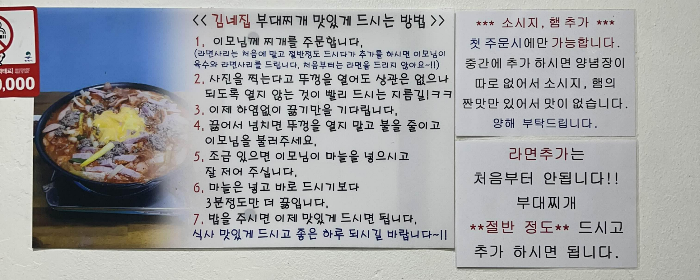 << 김네집 부대찌개 맛있게 드시는 방법 >>
1. 이모님께 찌개를 주문합니다.
(라면사리는 처음에 말고 절반정도 드시다가 추가를 하시면 이모님이
육수와 라면사리를 드립니다. 처음부터는 라면을 드리지 않아요~!!)
2. 사진을 찍는다고 뚜껑을 열어도 상관은 없으나
되도록 열지 않는 것이 빨리 드시는 지름길!ㅋㅋ
3. 이제 하염없이 끓기만을 기다립니다.
4. 끓어서 넘치면 뚜껑을 열지 말고 불을 줄이고
이모님을 불러주세요.
5. 조금 있으면 이모님이 마늘을 넣으시고
잘 저어 주십니다.
6. 마늘은 넣고 바로 드시기보다
3분정도만 더 끓입니다.
7. 밥을 주시면 이제 맛있게 드시면 됩니다.
식사 맛있게 드시고 좋은 하루 되시길 바랍니다~!!
*** 소시지, 햄 추가 ***
첫 주문시에만 가능합니다.
중간에 추가 하시면 양념장이
따로 없어서 소시지, 햄의
짠맛만 있어서 맛이 없습니다.
양해 부탁드립니다.
라면추가는
처음부터 안됩니다!!
부대찌개
**절반 정도** 드시고
추가 하시면 됩니다.
0,000